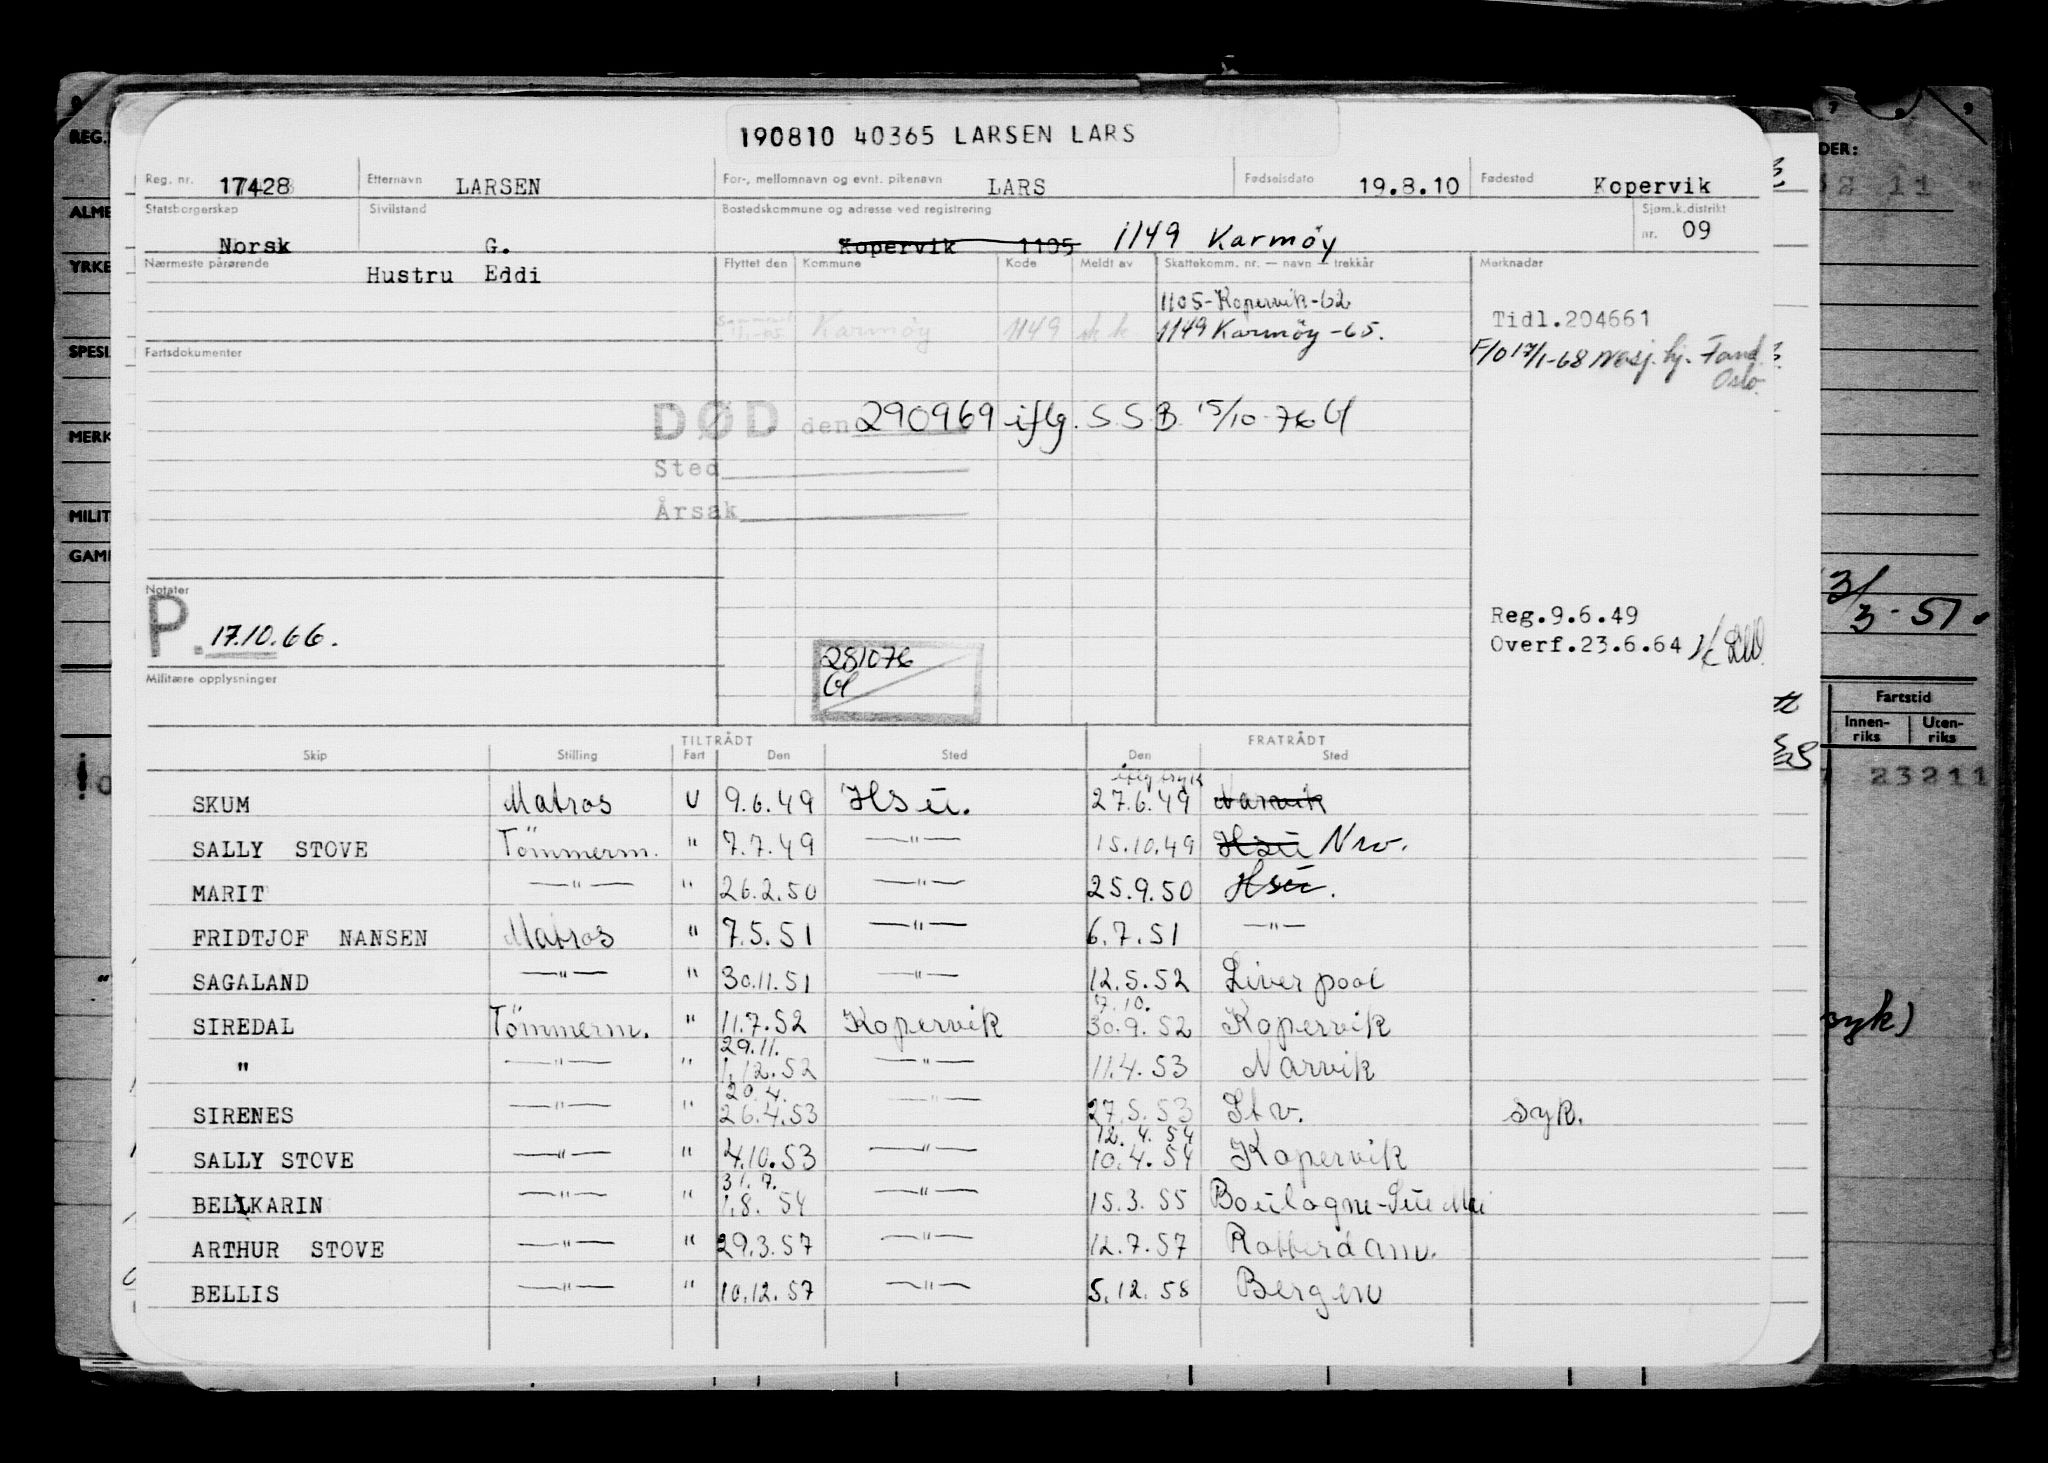 190810 40365 LARSEN LARS
Reg. nr. 17428 Etternavn LARSEN For-, mellomnavn og evnt. pikenavn LARS Fødselsdato 19.8.10 Fødested Kopervik
Statsborgerskap Norsk Sivilstand G. Bostedskommune og adresse ved registrering Kopervik 1105 1149 Karmöy Sjøm.k.distrikt nr. 09
Nærmeste pårørende Hustru Eddi Flyttet den Kommune Kode Meldt av Skattekomm. nr. — navn — trekkår Merknader
1105-Kopervik-62
Karmöy 1149 1149 Karmöy-65. Tidl.204661
Fartsdokumenter F/O 17/1-68 Oslo.
DØD den 290969 iflg. S.S.B. 15/10-76
Sted
Årsak
Notater
P. 17.10.66.
Reg.9.6.49
Overf.23.6.64
281076
Militære opplysninger
TILTRÅDT FRATRÅDT
Skip Stilling Fart Den Sted Den Sted
SKUM Matros U 9.6.49 Hsu. 27.6.49 Narvik
SALLY STOVE Tömmerm. " 7.7.49 —"— 15.10.49 Hsu Nrv.
MARIT —"— " 26.2.50 —"— 25.9.50 Hsu.
FRIDTJOF NANSEN Matros " 7.5.51 —"— 6.7.51 —"—
SAGALAND —"— " 30.11.51 —"— 12.5.52 Liverpool
7.10.
SIREDAL Tömmerm. " 11.7.52 Kopervik 30.9.52 Kopervik
29.11.
" —"— " 1.12.52 —"— 11.4.53 Narvik
20.4.
SIRENES —"— " 26.4.53 —"— 27.5.53 Stv. syk.
12.4.54
SALLY STOVE —"— " 4.10.53 —"— 10.4.54 Kopervik
31.7.
BELLKARIN —"— " 1.8.54 —"— 15.3.55 Boulogne-Sue Mei
ARTHUR STOVE —"— " 29.3.57 —"— 12.7.57 Rotterdam.
BELLIS —"— " 10.12.57 —"— 5.12.58 Bergen
REG.
ALME
YRKE
SPESI
MERK
MILIT
GAML
DER:
3/3-51.
Fartstid
Innen-riks Uten-riks
23211
syk)